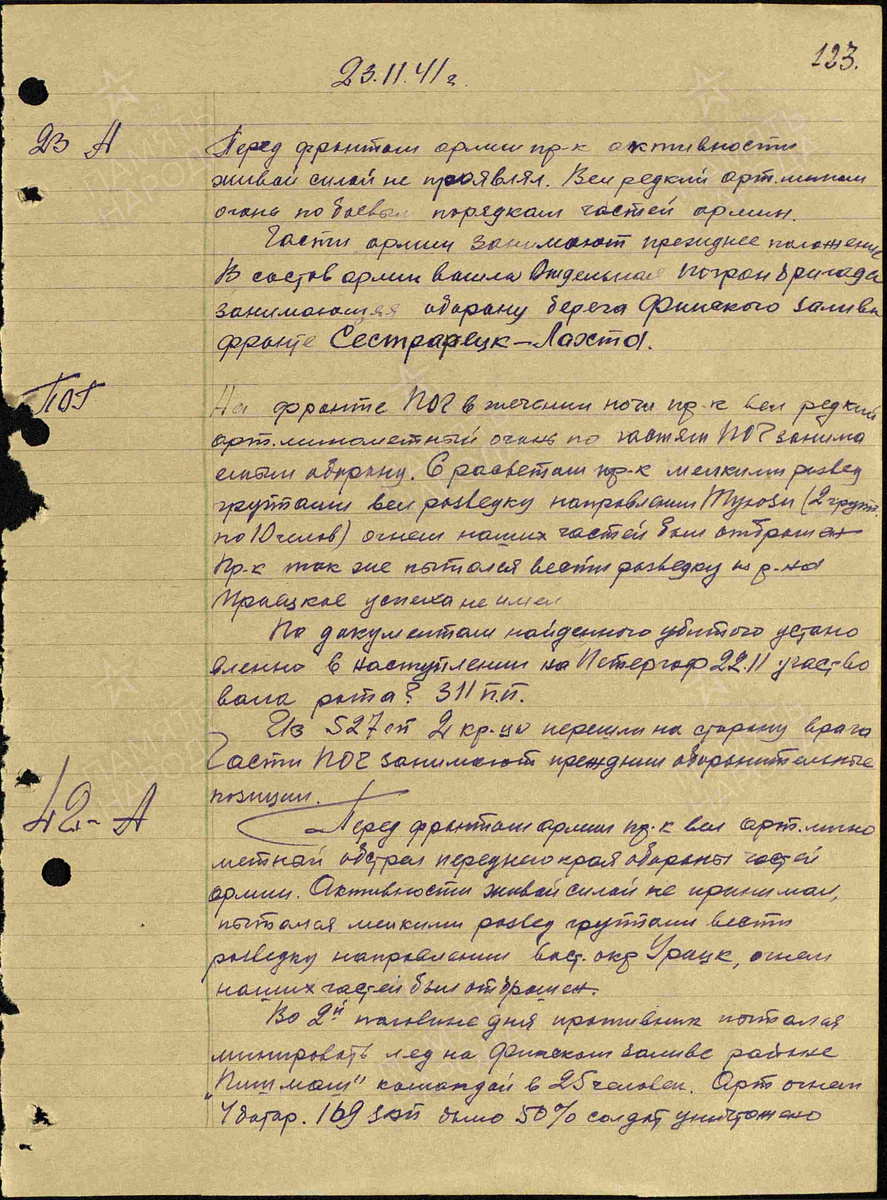 123.
23.11.41 г.
23 А
Перед фронтом армии пр-к активности
живой силой не проявлял. Вел редкий арт.мином
огонь по боевым порядкам частей армии.
Части армии занимают прежднее положение
В состав армии вошла Отдельная погран бригада
занимающая оборону берега Финского залива
фронте Сестрарецк-Лахта.
ПОГ
На фронте ПОГ в течении ночи пр-к вел редкий
арт.минометный огонь по частям ПОГ занима
емым оборону. С расветом пр-к мелкими развед
группами вел разведку направлении Туюзи (2 групп.
по 10 челов) огнем наших частей был отброшен
Пр-к так же пытался вести разведку из р-на
Троицкое успеха не имел
По документам найденного убитого устано
вленно в наступлении на Петергоф 22.11 участво
вала рота? 311 п.п.
Из 527 сп 2 кр-ца перешли на сторону врага
Части ПОГ занимают прежднии оборонительные
позиции.
42-А
Перед фронтом армии пр-к вел арт.мино
метный обстрел переднего края обороны частей
армии. Активности живой силой не принимал,
пытался мелкими развед группами вести
разведку направлении вост. окр Урицк, огнем
наших частей был отброшен.
Во 2й половине дня противник пытался
минировать лед на Финском заливе районе
"Пишмаш" командой в 25 человек. Арт огнем
4 батар. 169 зап было 50% солдат уничтожено
ПАМЯТЬ
НАРОДА